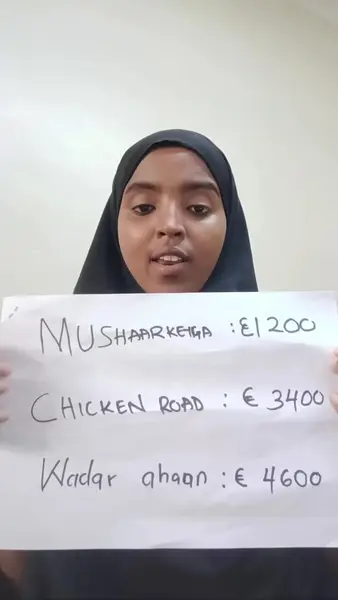 MUSHAARKEIGA : €1200
CHICKEN ROAD : € 3400
Wadar ahaan : € 4600